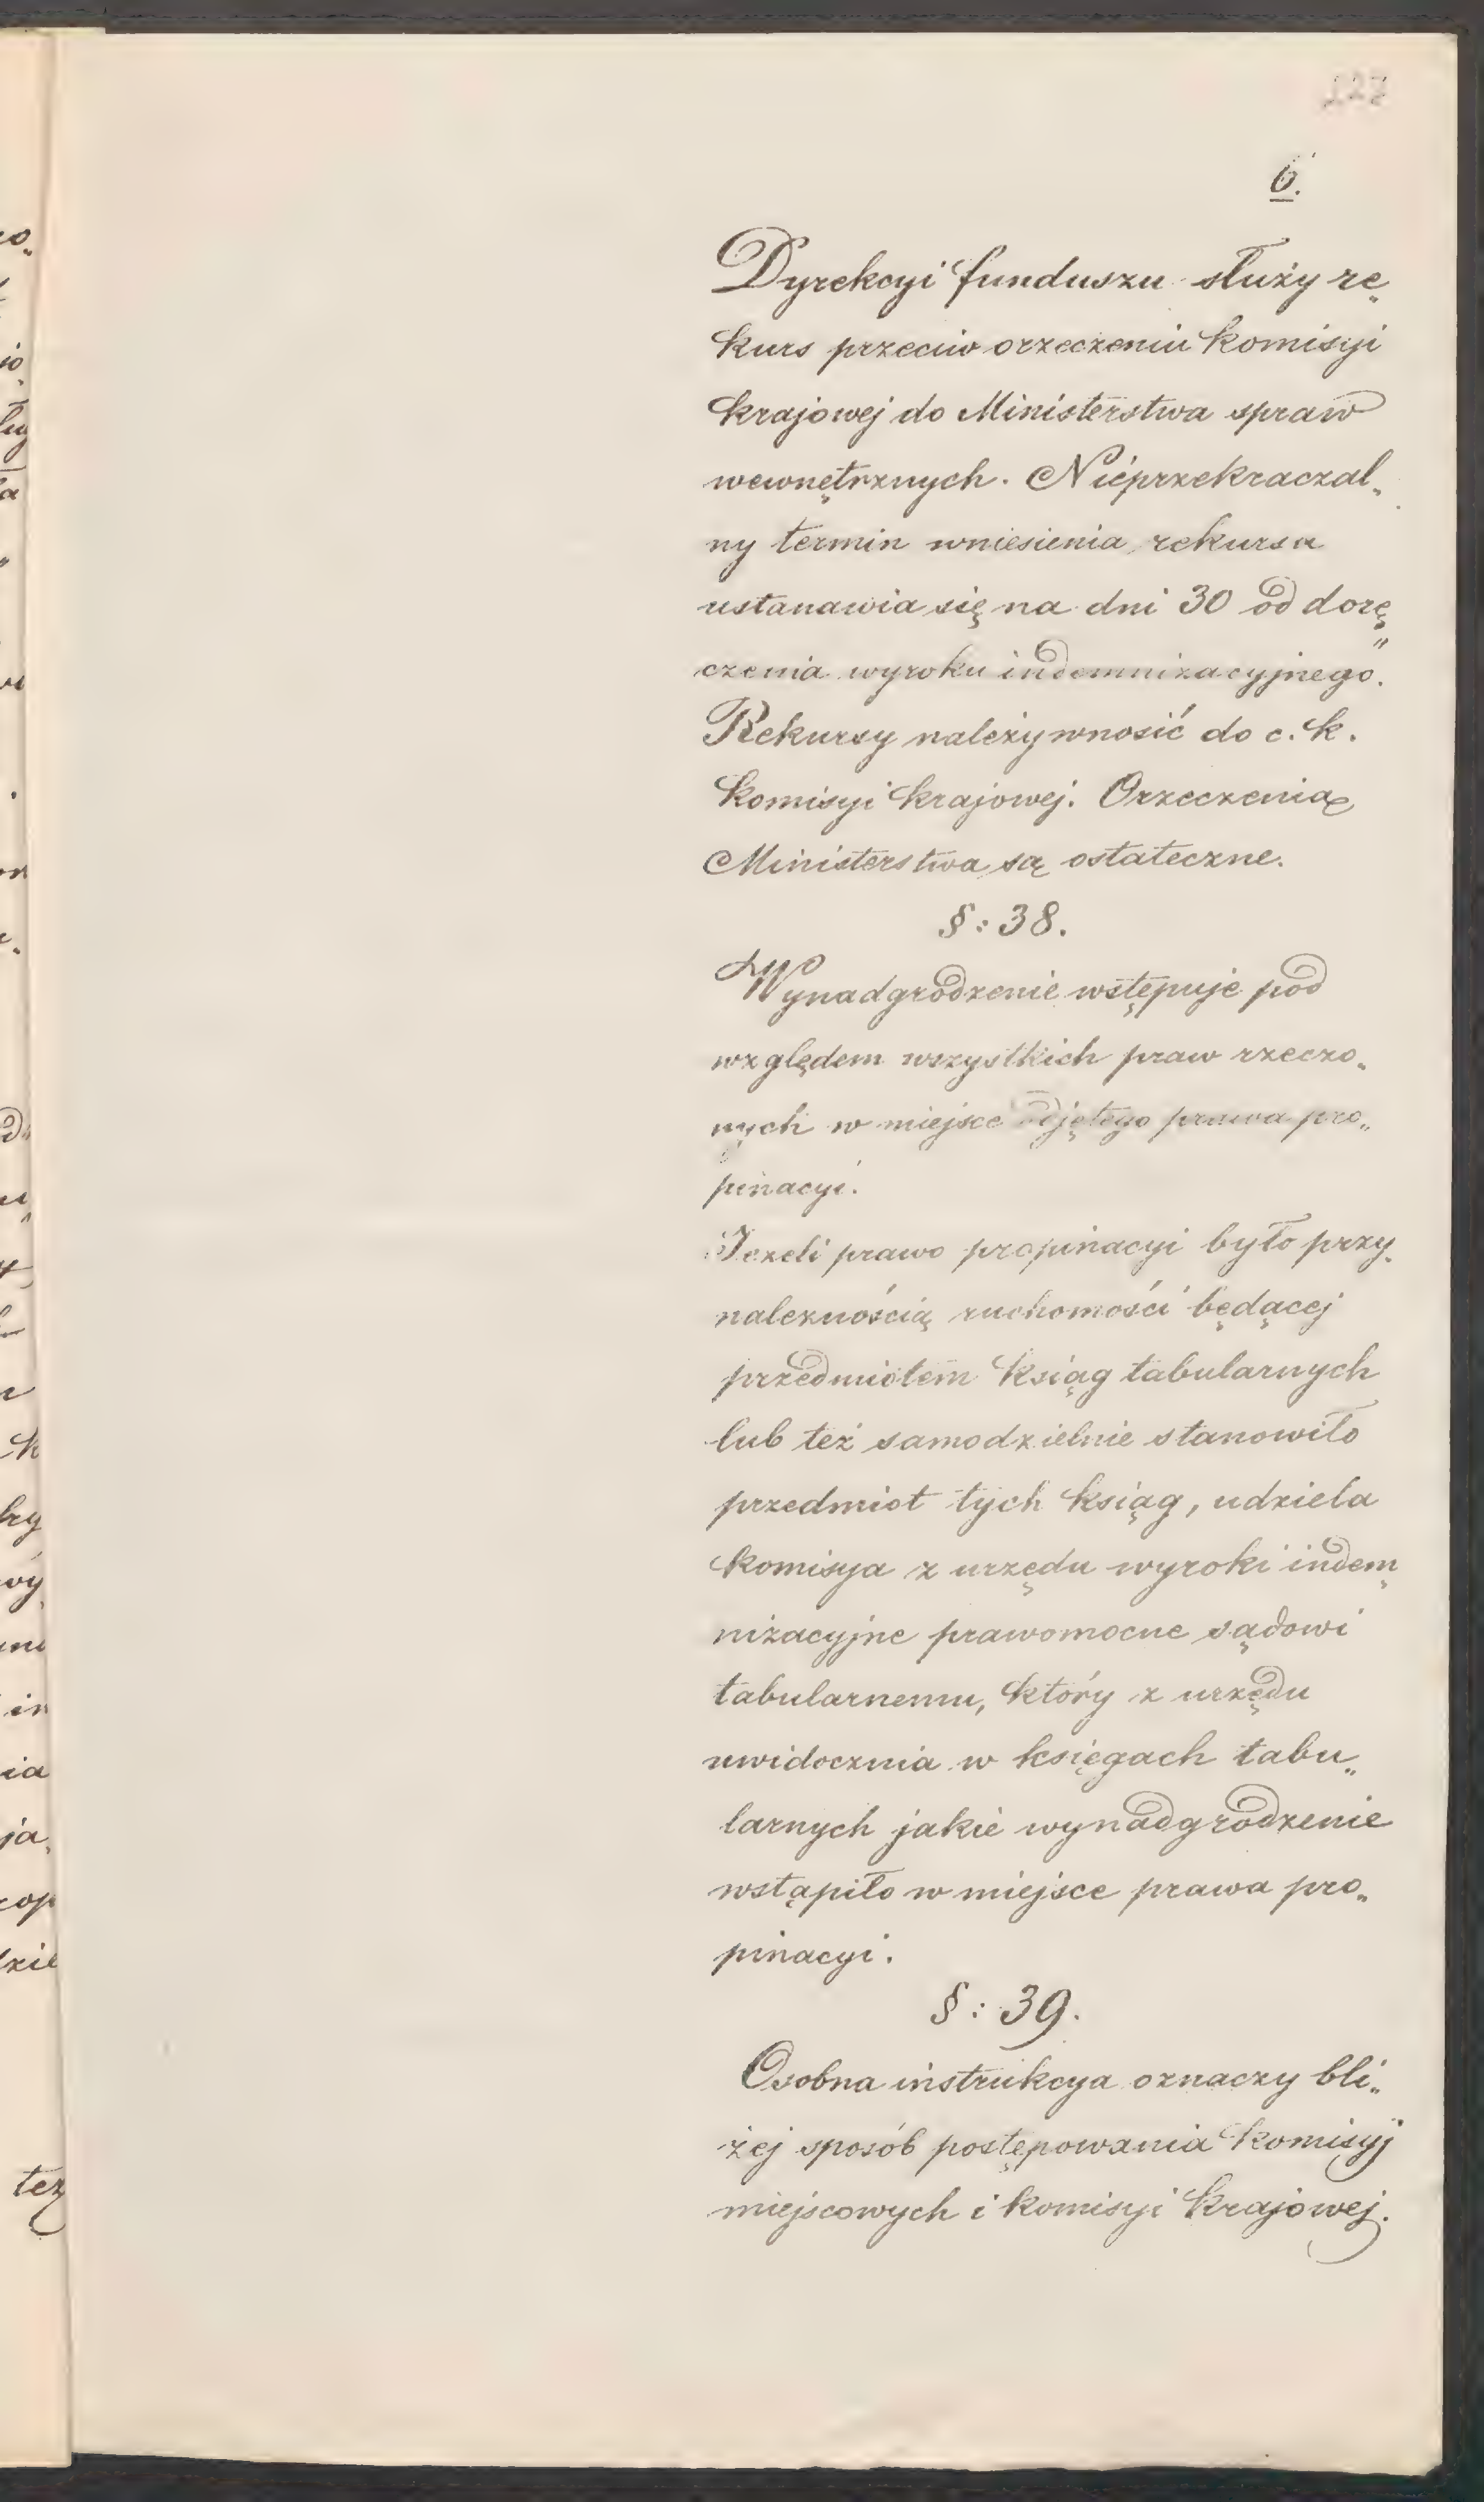 6.
Dyrekcyi funduszu służy re„
kurs przeciw orzeczeniu komisyi
krajowej do Ministerstwa spraw
wewnętrznych. Nieprzekraczal„
ny termin wniesienia rekursu
ustanawia się na dni 30 od dorę„
czenia wyroku indemnizacyjnego.
Rekursy należy wnosić do c. k.
komisyi krajowej. Orzeczenia
Ministerstwa są ostateczne.
§: 38.
Wynadgrodzenie wstępuje pod
względem wszystkich praw rzeczo„
nych w miejsce odjętego prawa pro„
pinacyi.
Jeżeli prawo propinacyi było przy„
należnością ruchomości będącej
przedmiotem ksiąg tabularnych
lub też samodzielnie stanowiło
przedmiot tych ksiąg, udziela
komisya z urzędu wyroki indem„
nizacyjne prawomocne sądowi
tabularnemu, który z urzędu
uwidocznia w księgach tabu„
larnych jakie wynadgrodzenie
wstąpiło w miejsce prawa pro„
pinacyi.
§: 39.
Osobna instrukcya oznaczy bli„
żej sposób postępowania komisyj
miejscowych i komisyi krajowej.
też